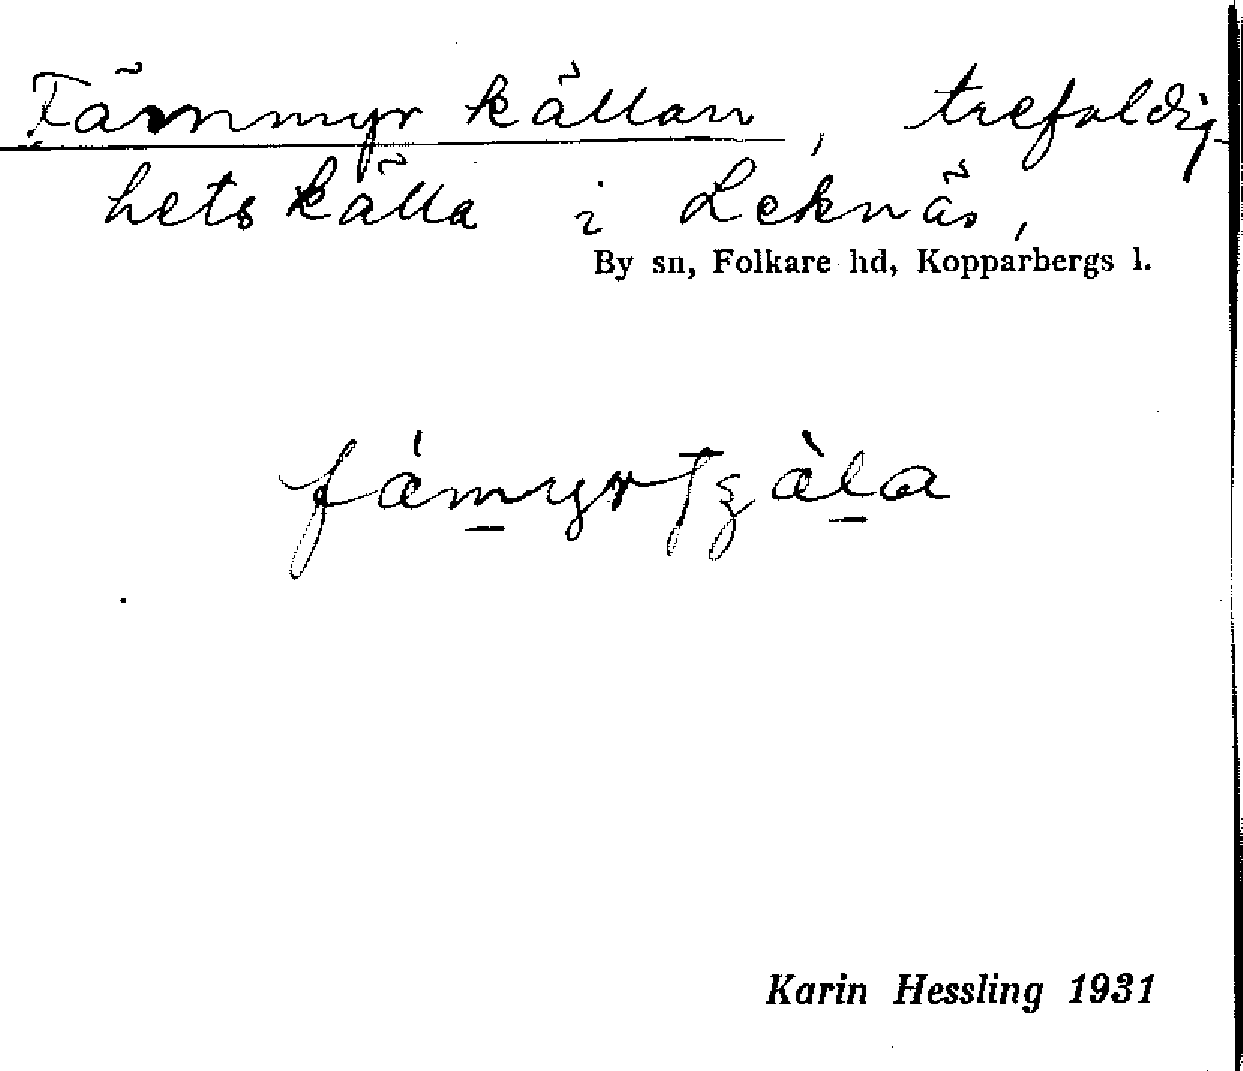 Fämmyrkällan, trefaldig-
hetskälla i Leknäs,
By sn, Folkare hd, Kopparbergs l.
Karin Hessling 1931